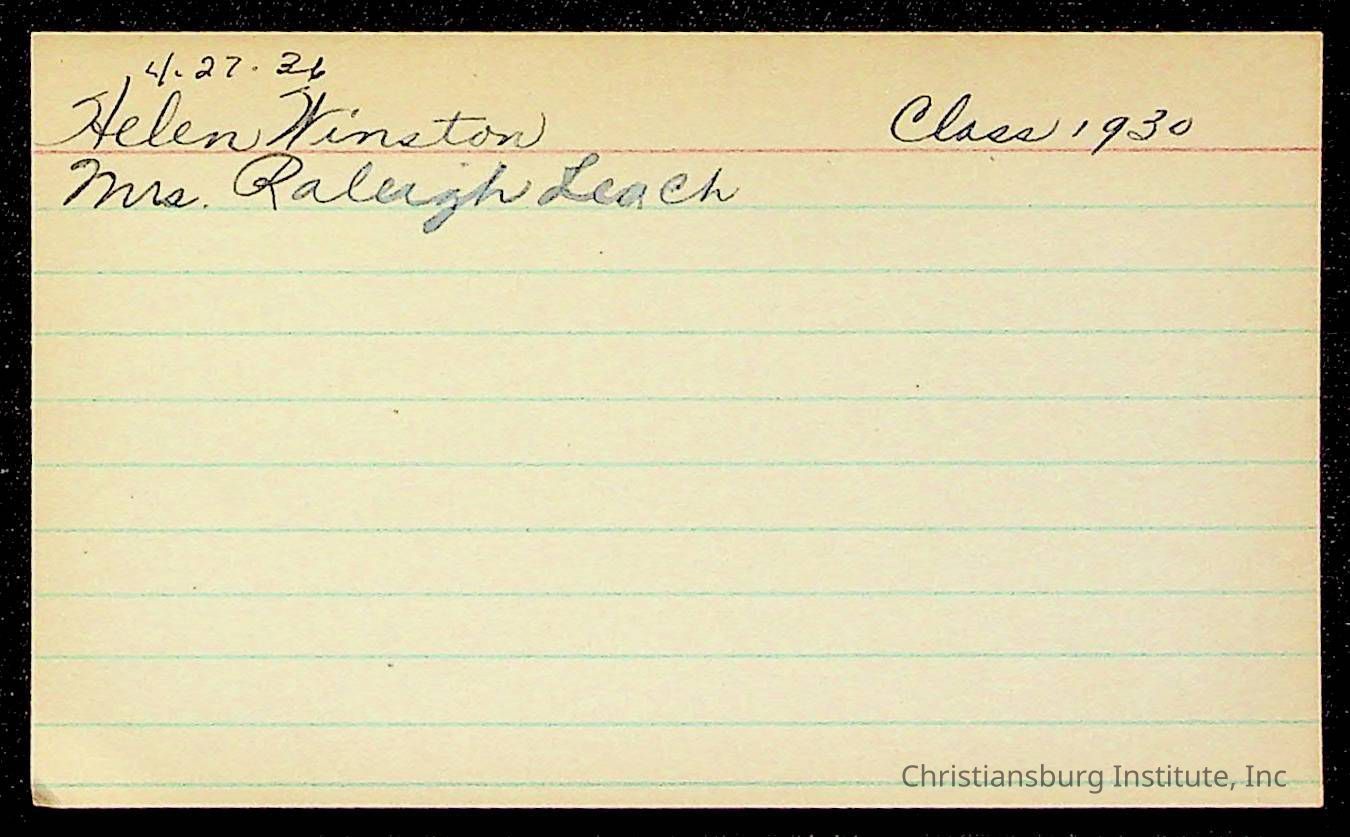 4. 27. 36
Helen Winston Class 1930
Mrs. Raleigh Leach
Christiansburg Institute, Inc